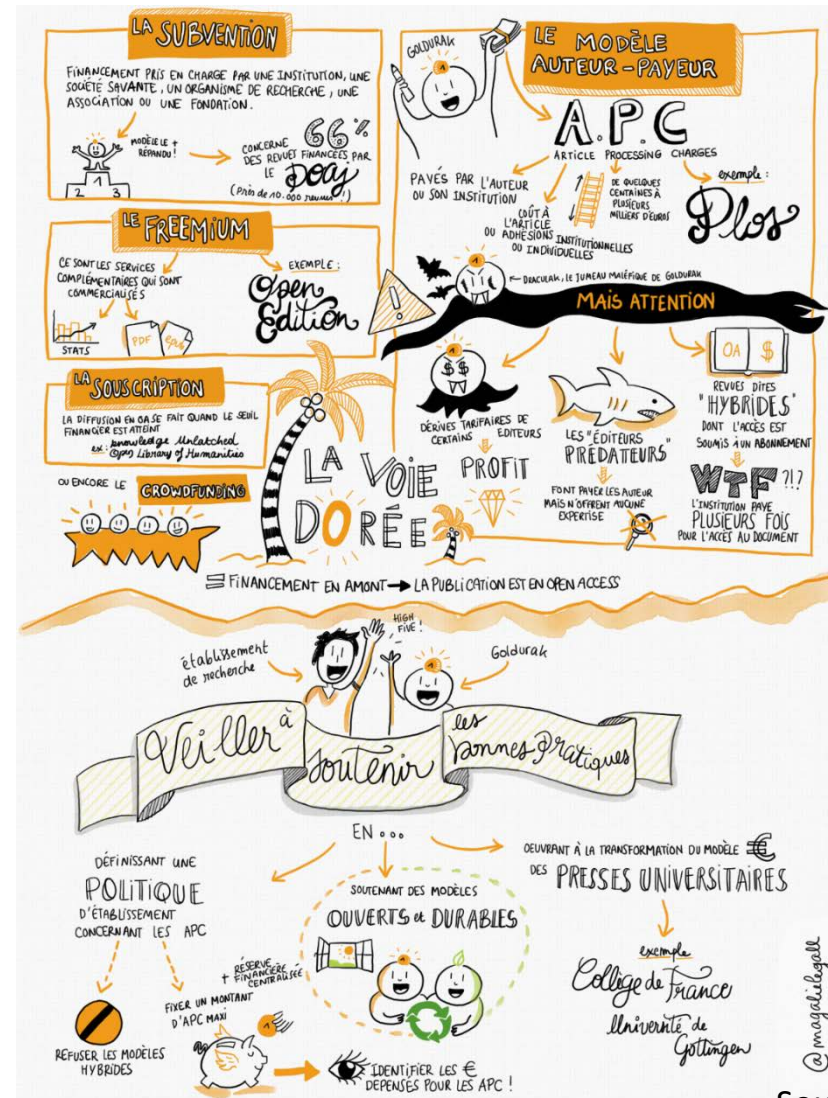 LA SUBVENTION
FINANCEMENT PRIS EN CHARGE PAR UNE INSTITUTION, UNE
SOCIÉTÉ SAVANTE, UN ORGANISME DE RECHERCHE, UNE
ASSOCIATION OU UNE FONDATION.
MODÈLE LE +
RÉPANDU !
2 1 3
CONCERNE 66%
DES REVUES FINANCÉES PAR
LE Doaj
(Près de 10.000 revues !!)
LE FREEMIUM
CE SONT LES SERVICES
COMPLÉMENTAIRES QUI SONT
COMMERCIALISÉS
STATS
PDF
epub
EXEMPLE :
Open
Edition
LA SOUSCRIPTION
LA DIFFUSION EN OA SE FAIT QUAND LE SEUIL
FINANCIER EST ATTEINT
ex: Knowledge Unlatched
Open Library of Humanities
OU ENCORE LE CROWDFUNDING
GOLDURAK
LE MODÈLE
AUTEUR-PAYEUR
A.P.C
ARTICLE PROCESSING CHARGES
PAYÉS PAR L'AUTEUR
OU SON INSTITUTION
COÛT À
L'ARTICLE
OU ADHÉSIONS INSTITUTIONNELLES
OU INDIVIDUELLES
DE QUELQUES
CENTAINES À
PLUSIEURS
MILLIERS D'EUROS
exemple :
Plos
DRACULAK, LE JUMEAU MALÉFIQUE DE GOLDURAK
!
MAIS ATTENTION
$ $
DÉRIVES TARIFAIRES DE
CERTAINS EDITEURS
PROFIT
LES "ÉDITEURS
PRÉDATEURS"
FONT PAYER LES AUTEUR
MAIS N'OFFRENT AUCUNE
EXPERTISE
OA $
REVUES DITES
"HYBRIDES"
DONT L'ACCÈS EST
SOUMIS À UN ABONNEMENT
WTF ?!?
L'INSTITUTION PAYE
PLUSIEURS FOIS
POUR L'ACCÈS AU DOCUMENT
LA VOIE
DORÉE
= FINANCEMENT EN AMONT → LA PUBLICATION EST EN OPEN ACCESS
HIGH
FIVE !
établissement
de recherche
Goldurak
Veiller à
soutenir
les bonnes pratiques
EN ...
DÉFINISSANT UNE
POLITIQUE
D'ÉTABLISSEMENT
CONCERNANT LES APC
REFUSER LES MODÈLES
HYBRIDES
FIXER UN MONTANT
D'APC MAXI
+ RÉSERVE
FINANCIÈRE
CENTRALISÉE
IDENTIFIER LES €
DEPENSÉS POUR LES APC !
SOUTENANT DES MODÈLES
OUVERTS et DURABLES
OEUVRANT À LA TRANSFORMATION DU MODÈLE €
DES PRESSES UNIVERSITAIRES
exemple
Collège de France
Université de
Gottingen
@magalielegall